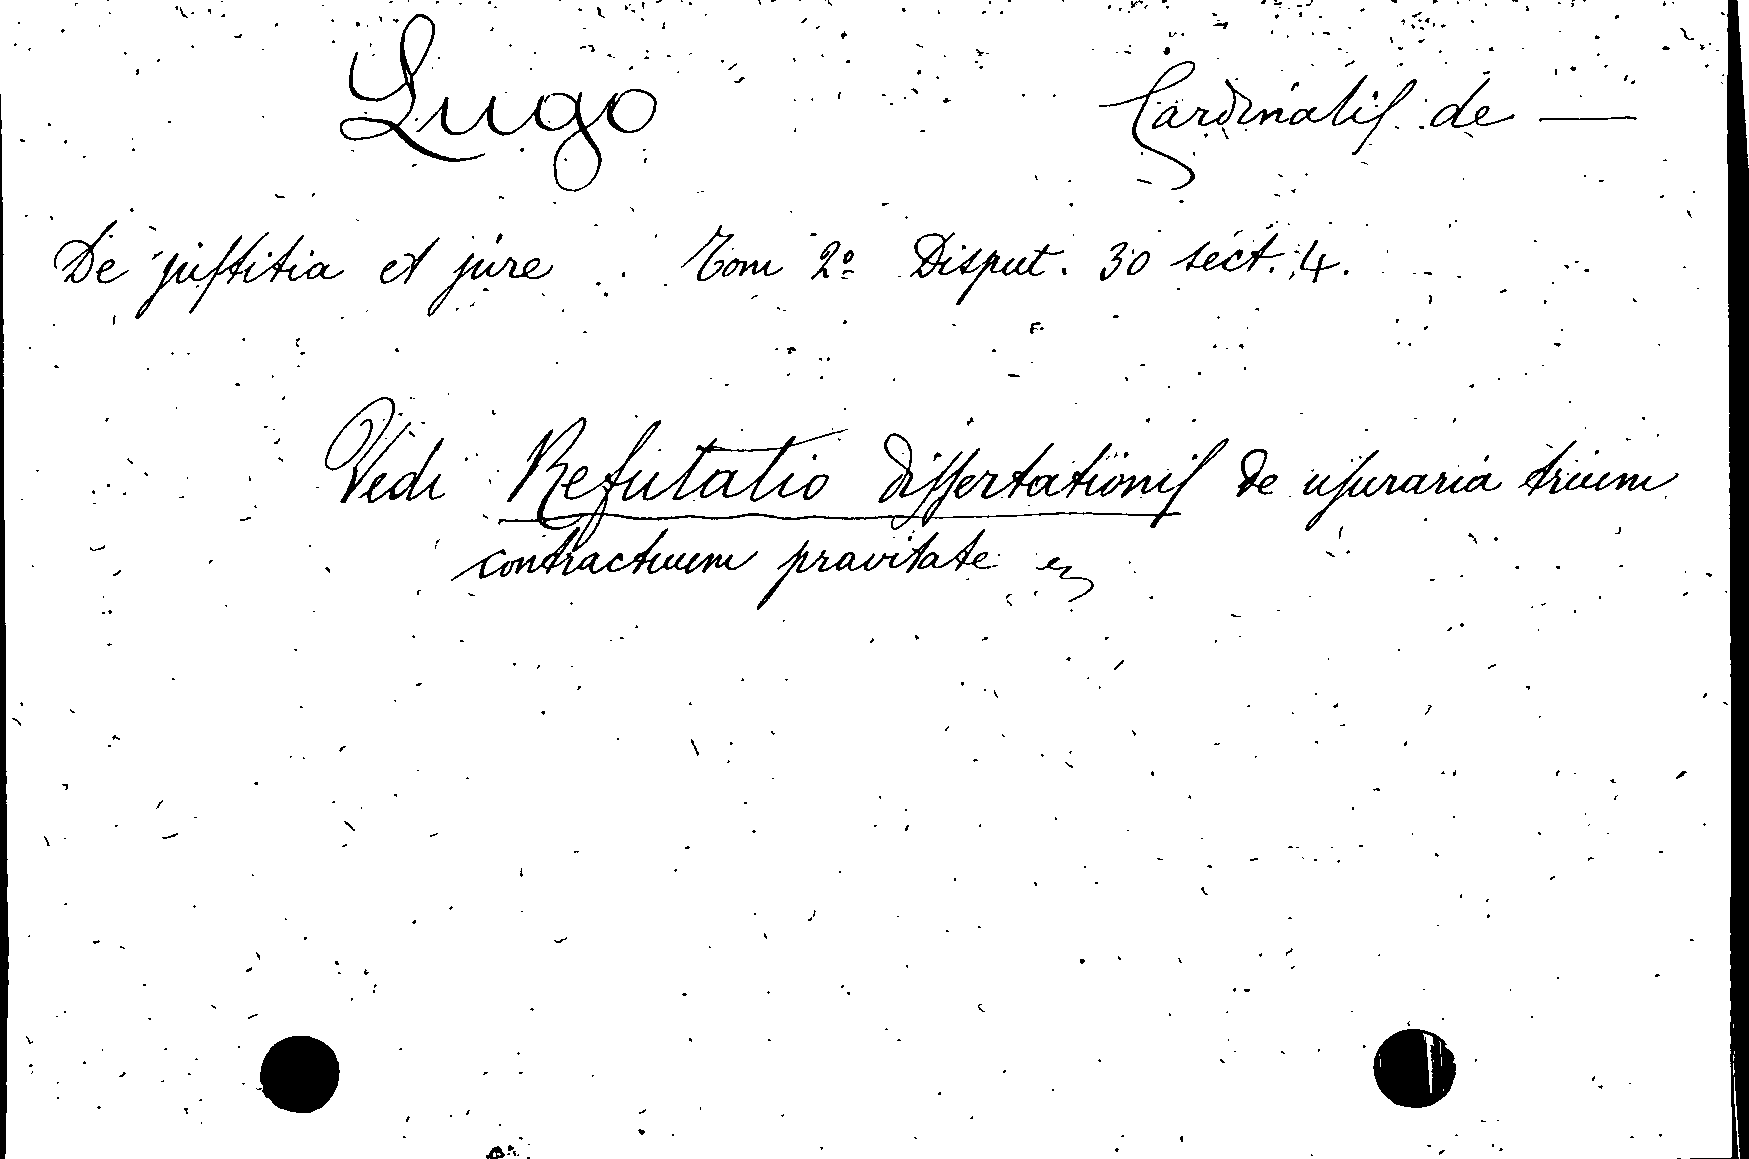 Lugo Cardinalis de —
De justitia et jure . Tom 2º Disput. 30 sect. 4.
Vedi Refutatio dissertationis de usuraria trium
contractuum pravitate